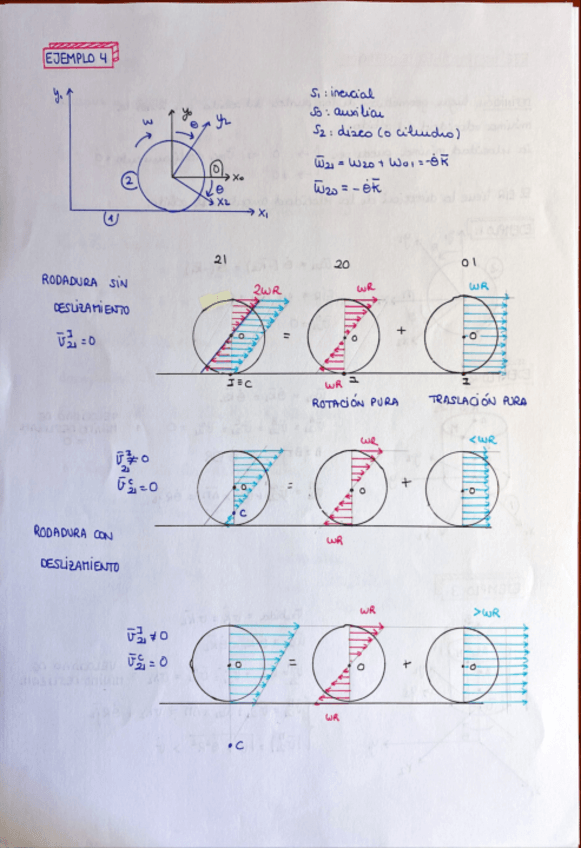 EJEMPLO 4
y₁
ω
y₀
θ
y₂
0
x₀
θ
x₂
2
1
x₁
S₁: inercial
S₀: auxiliar
S₂: disco (o cilindro)
ω̄₂₁ = ω₂₀ + ω₀₁ = -θ̇k̄
ω̄₂₀ = -θ̇k̄
21 20 01
RODADURA SIN
DESLIZAMIENTO
v̄ᴵ₂₁ = 0
2ωR ωR ωR
O = O + O
I ≡ C ωR I I
ROTACIÓN PURA TRASLACIÓN PURA
v̄ᴵ₂₁ ≠ 0
v̄ᶜ₂₁ = 0
ωR <ωR
O = O + O
C
ωR
RODADURA CON
DESLIZAMIENTO
v̄ᴵ₂₁ ≠ 0
v̄ᶜ₂₁ = 0
ωR >ωR
O = O + O
ωR
C